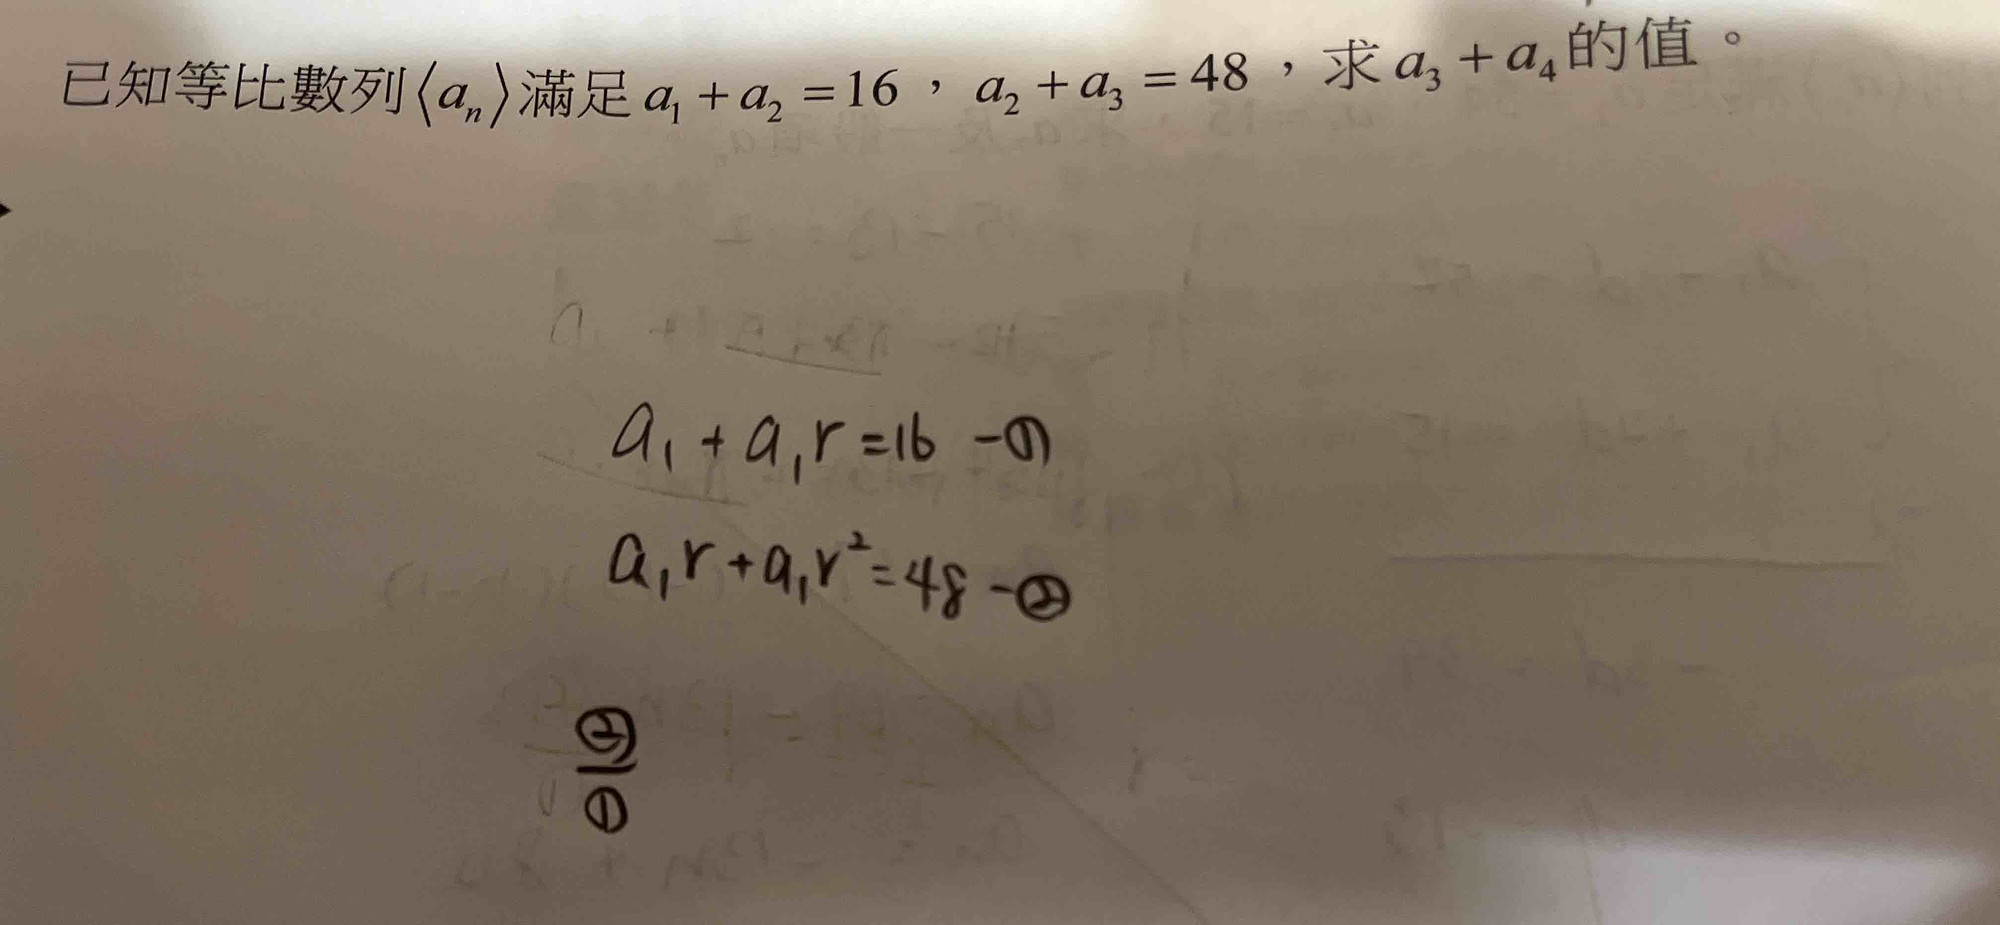 已知等比數列⟨aₙ⟩滿足 a₁ + a₂ = 16，a₂ + a₃ = 48，求 a₃ + a₄ 的值。
a₁ + a₁r = 16 -①
a₁r + a₁r² = 48 -②
②
①